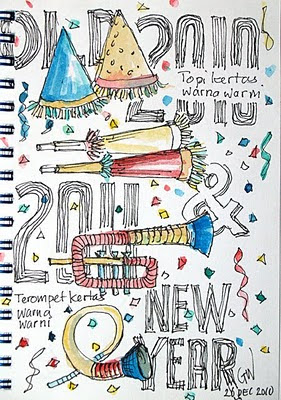 OLD 2010
Topi kertas
warna warni
&
2011
Terompet kertas
warna
warni
NEW
YEAR
26 DEC 2010